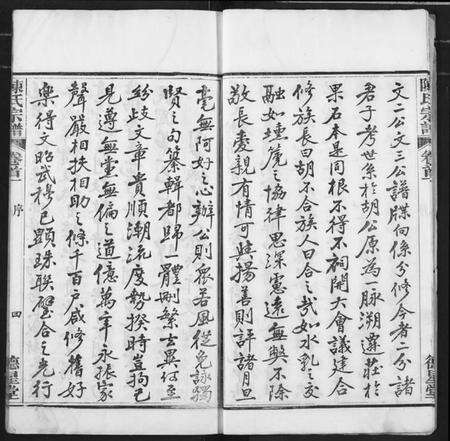 陳氏宗譜
卷首
文二公文三公譜牒向係分修今者二分諸
君子考世系於胡公原為一脉溯遷莊於
果石本是同根不得不祠開大會議建合
修族長曰胡不合族人曰合之哉如水乳之交
融如壎篪之協律思深慮遠無弊不除
敬長愛親有情可興揚善則評諸月旦
毫無阿好之心辦公則眾若風從免詠獨
賢之句纂輯都歸一體刪繁去異何至
紛歧文章貴順潮流度勢揆時豈拘已
見遵無黨無偏之道億萬年永振家
聲嚴相扶相助之條千百戶咸修舊好
樂得文昭武穆已顯珠聯璧合之光行
陳氏宗譜
卷首
序
四
德星堂
德星堂